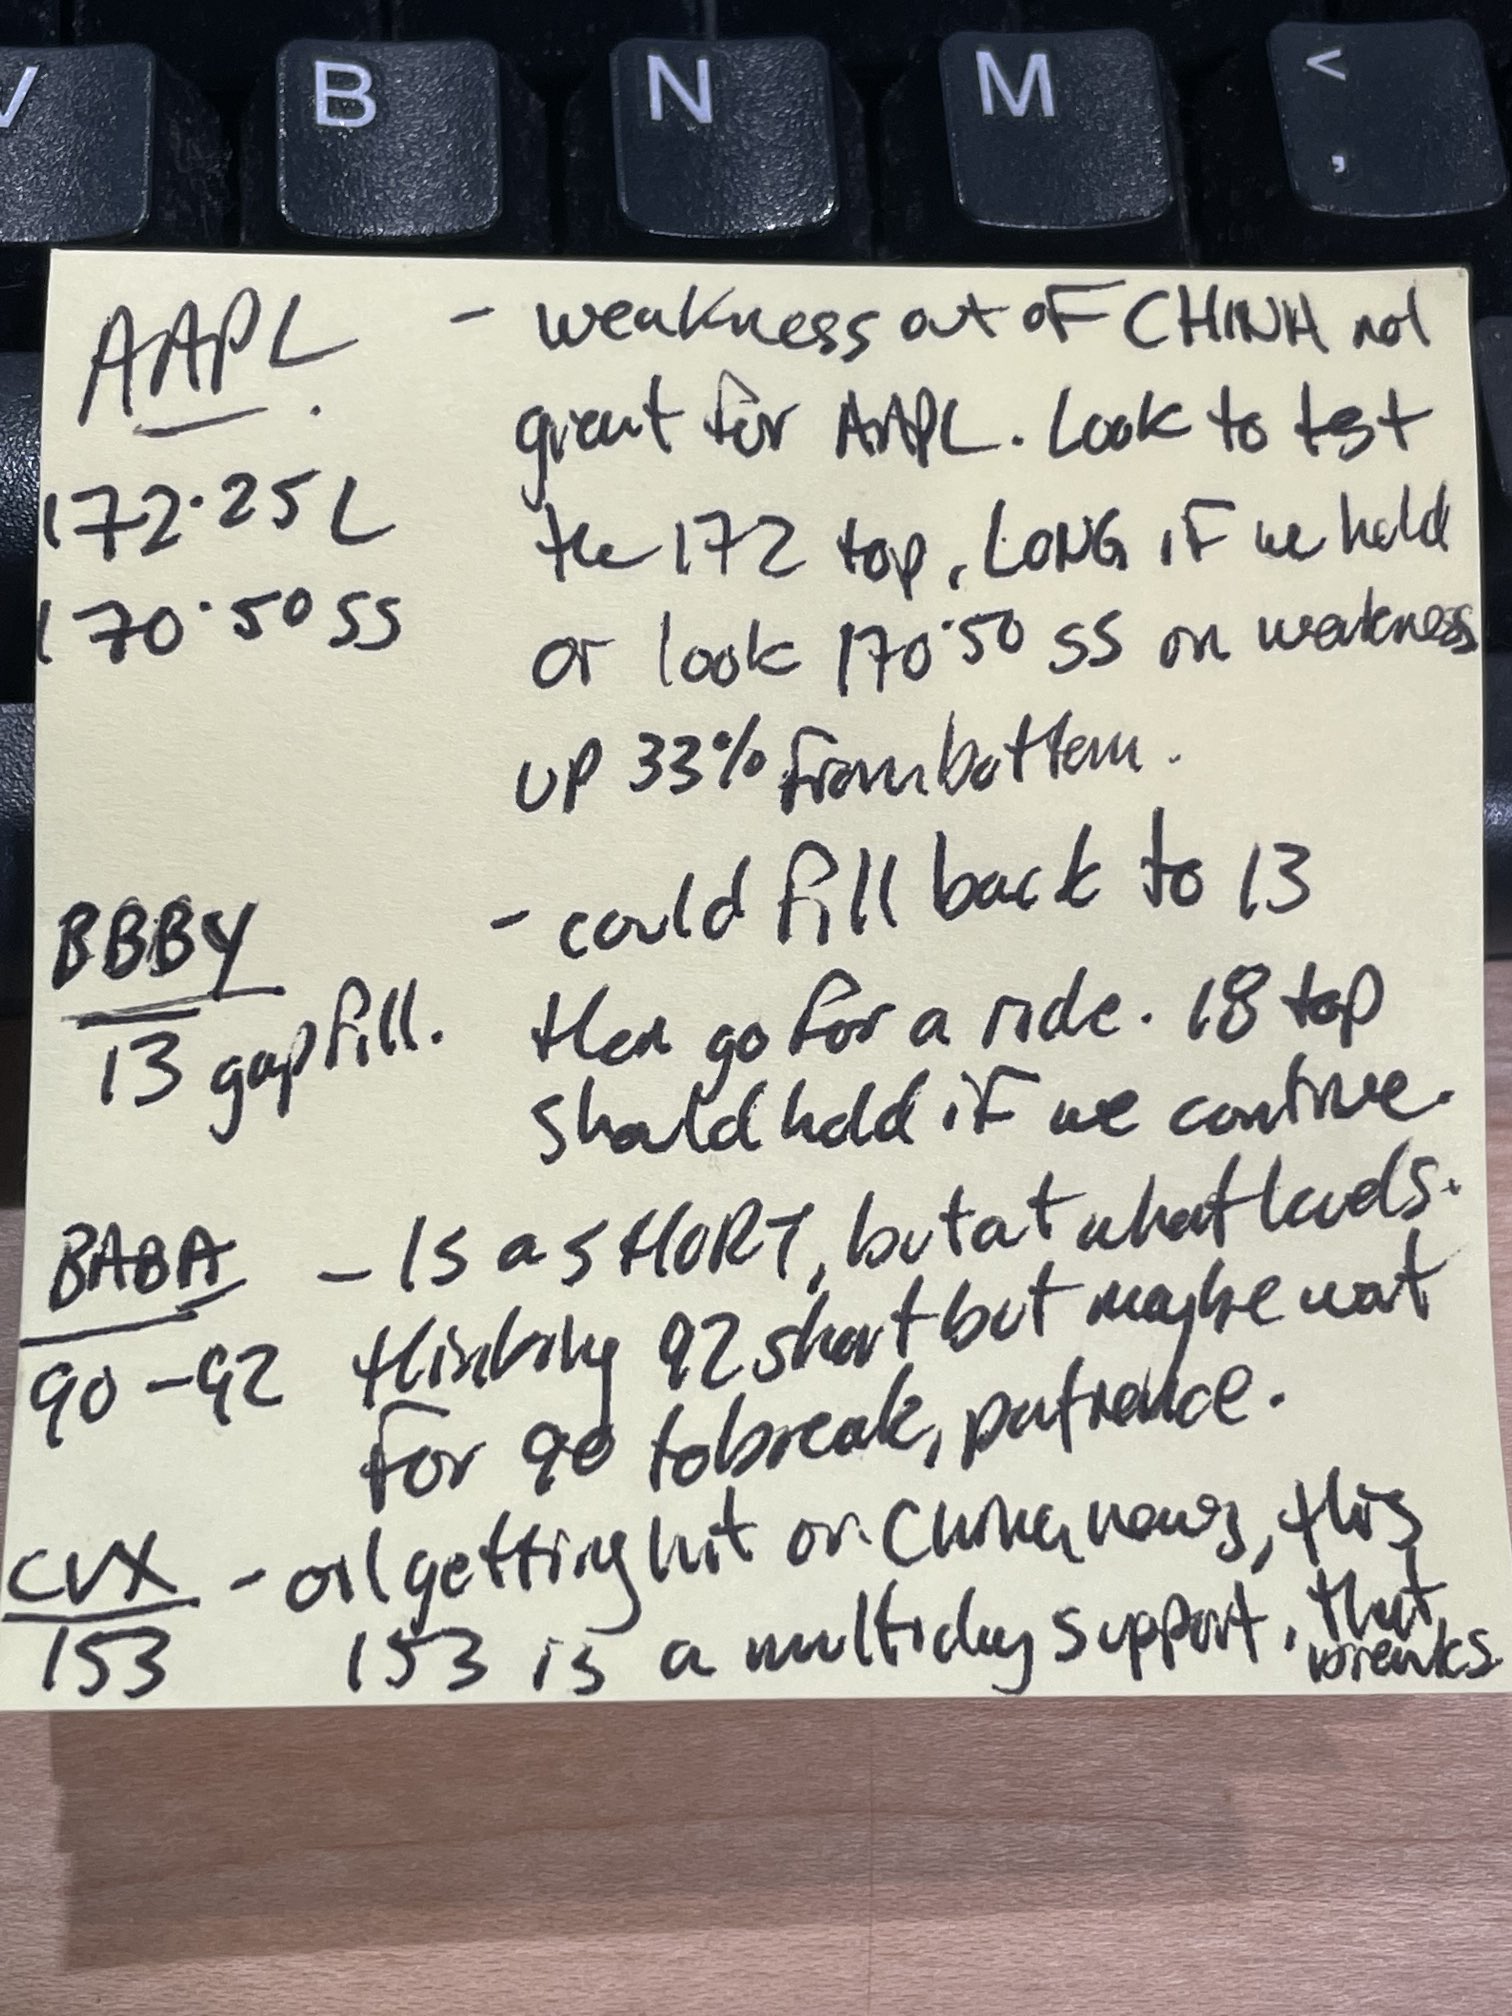 V B N M < ,
AAPL - weakness out of CHINA not
great for AAPL. Look to test
172.25 L the 172 top, LONG if we hold
170.50 SS or look 170.50 SS on weakness
up 33% from bottom.
BBBY - could fill back to 13
13 gap fill. then go for a ride. 18 top
should hold if we continue.
BABA - Is a SHORT, but at what levels.
90-92 thinking 92 short but maybe wait
for 90 to break, patience.
CVX - oil getting hit on China news, this
153 153 is a multiday support, that
breaks.